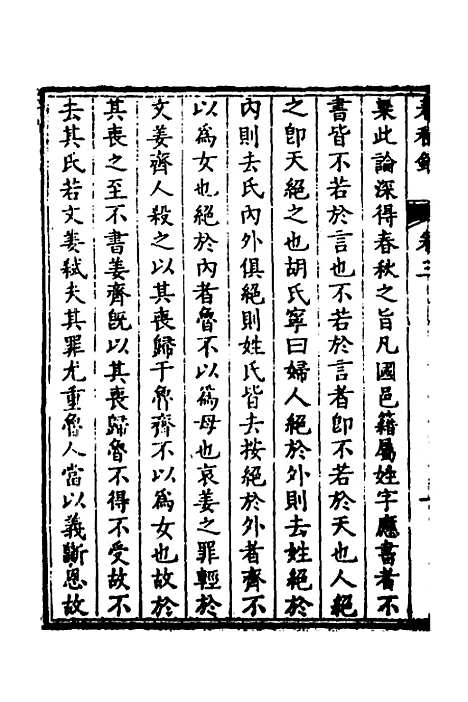 春秋錄 卷三
稾此論深得春秋之旨凡國邑籍屬姓字應書者不
書皆不若於言也不若於言者卽不若於天也人絕
之卽天絕之也胡氏寧曰婦人絕於外則去姓絕於
內則去氏內外俱絕則姓氏皆去按絕於外者齊不
以爲女也絕於內者魯不以爲母也哀姜之罪輕於
文姜齊人殺之以其喪歸于魯齊不以爲女也故於
其喪之至不書姜齊旣以其喪歸魯不得不受故不
去其氏若文姜弑夫其罪尤重魯人當以義斷恩故